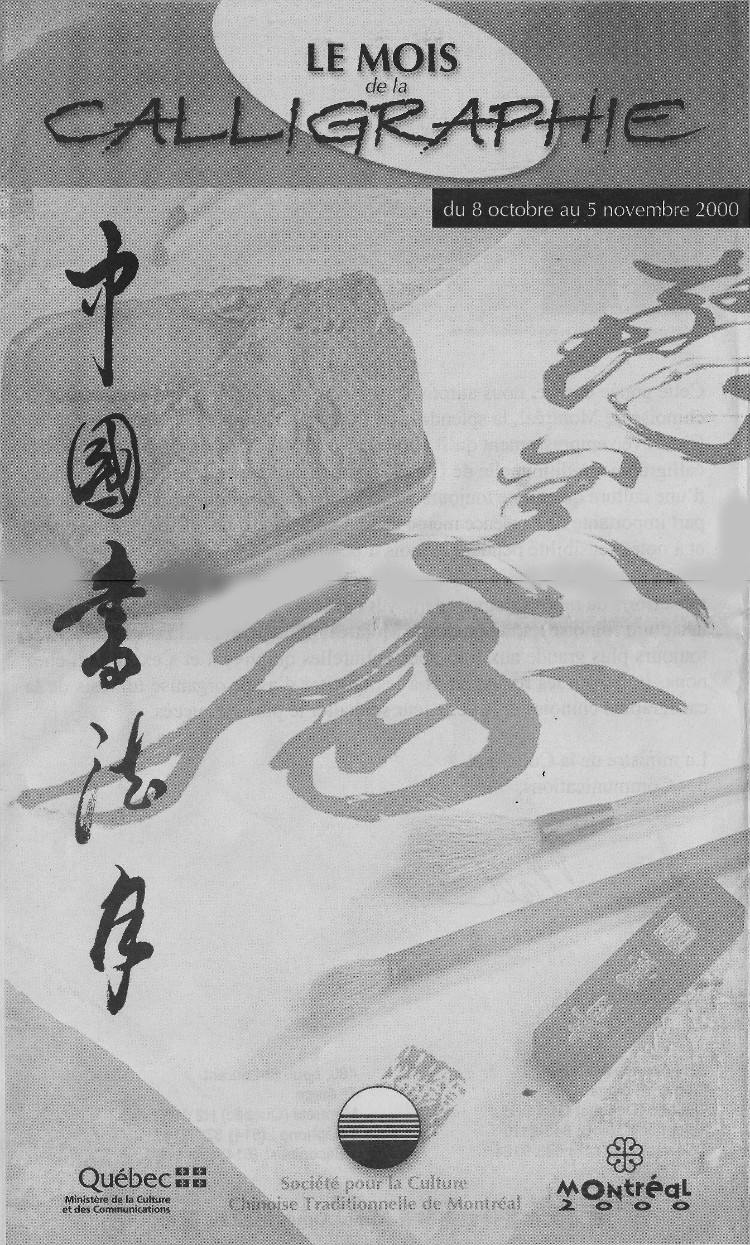 LE MOIS
de la
CALLIGRAPHIE
du 8 octobre au 5 novembre 2000
中國書法月
Québec
Ministère de la Culture
et des Communications
Société pour la Culture
Chinoise Traditionnelle de Montréal
Montréal
2000